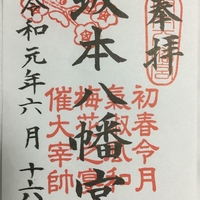 奉拝
坂本八幡宮
初春令月
氣淑風和
梅花之宴
催大宰帥
令和元年六月十六